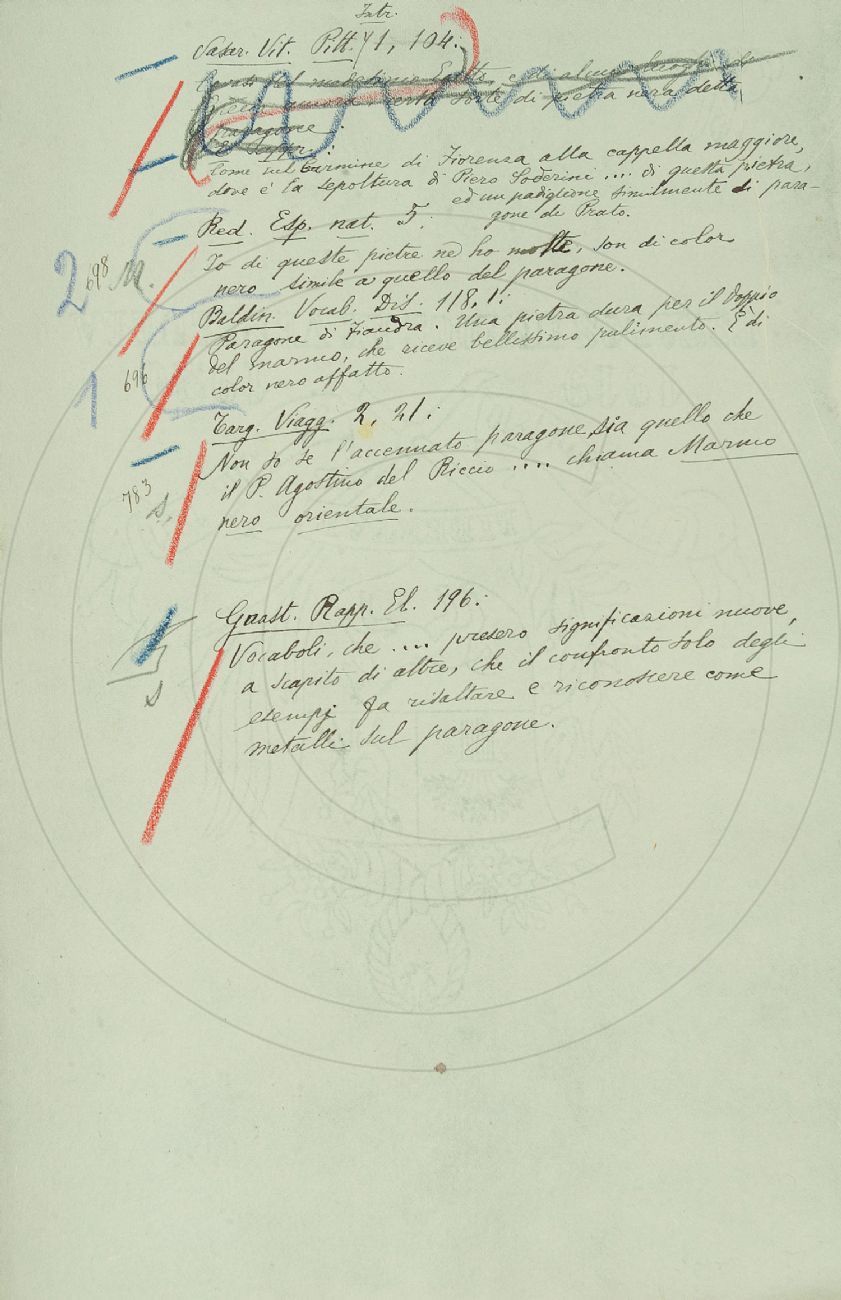 Intr.
Vasar. Vit. Pitt. 1, 104:
Cavasi del medesimo Egitto, e di alcuni luoghi di
Grecia ancora certa sorte di pietra nera detta
Paragone.
E Appr.:
Come nel Carmine di Fiorenza alla cappella maggiore,
dove è la sepoltura di Piero Soderini .... di questa pietra,
ed un padiglione similmente di para-
gone di Prato.
Red. Esp. nat. 5:
Io di queste pietre ne ho molte, son di color
nero simile a quello del paragone.
2 698 M.
Baldin. Vocab. Dis. 118.1:
Paragone di Fiandra. Una pietra dura per il doppio
del marmo, che riceve bellissimo pulimento. È di
color nero affatto.
1 696
Targ. Viagg. 2, 21:
Non so se l'accennato paragone sia quello che
il P. Agostino del Riccio .... chiama Marmo
nero orientale.
783 S.
Guast. Rapp. El. 196:
Vocaboli, che .... presero significazioni nuove,
a scapito di altre, che il confronto solo degli
esempj fa risaltare e riconoscere come
metalli sul paragone.
S